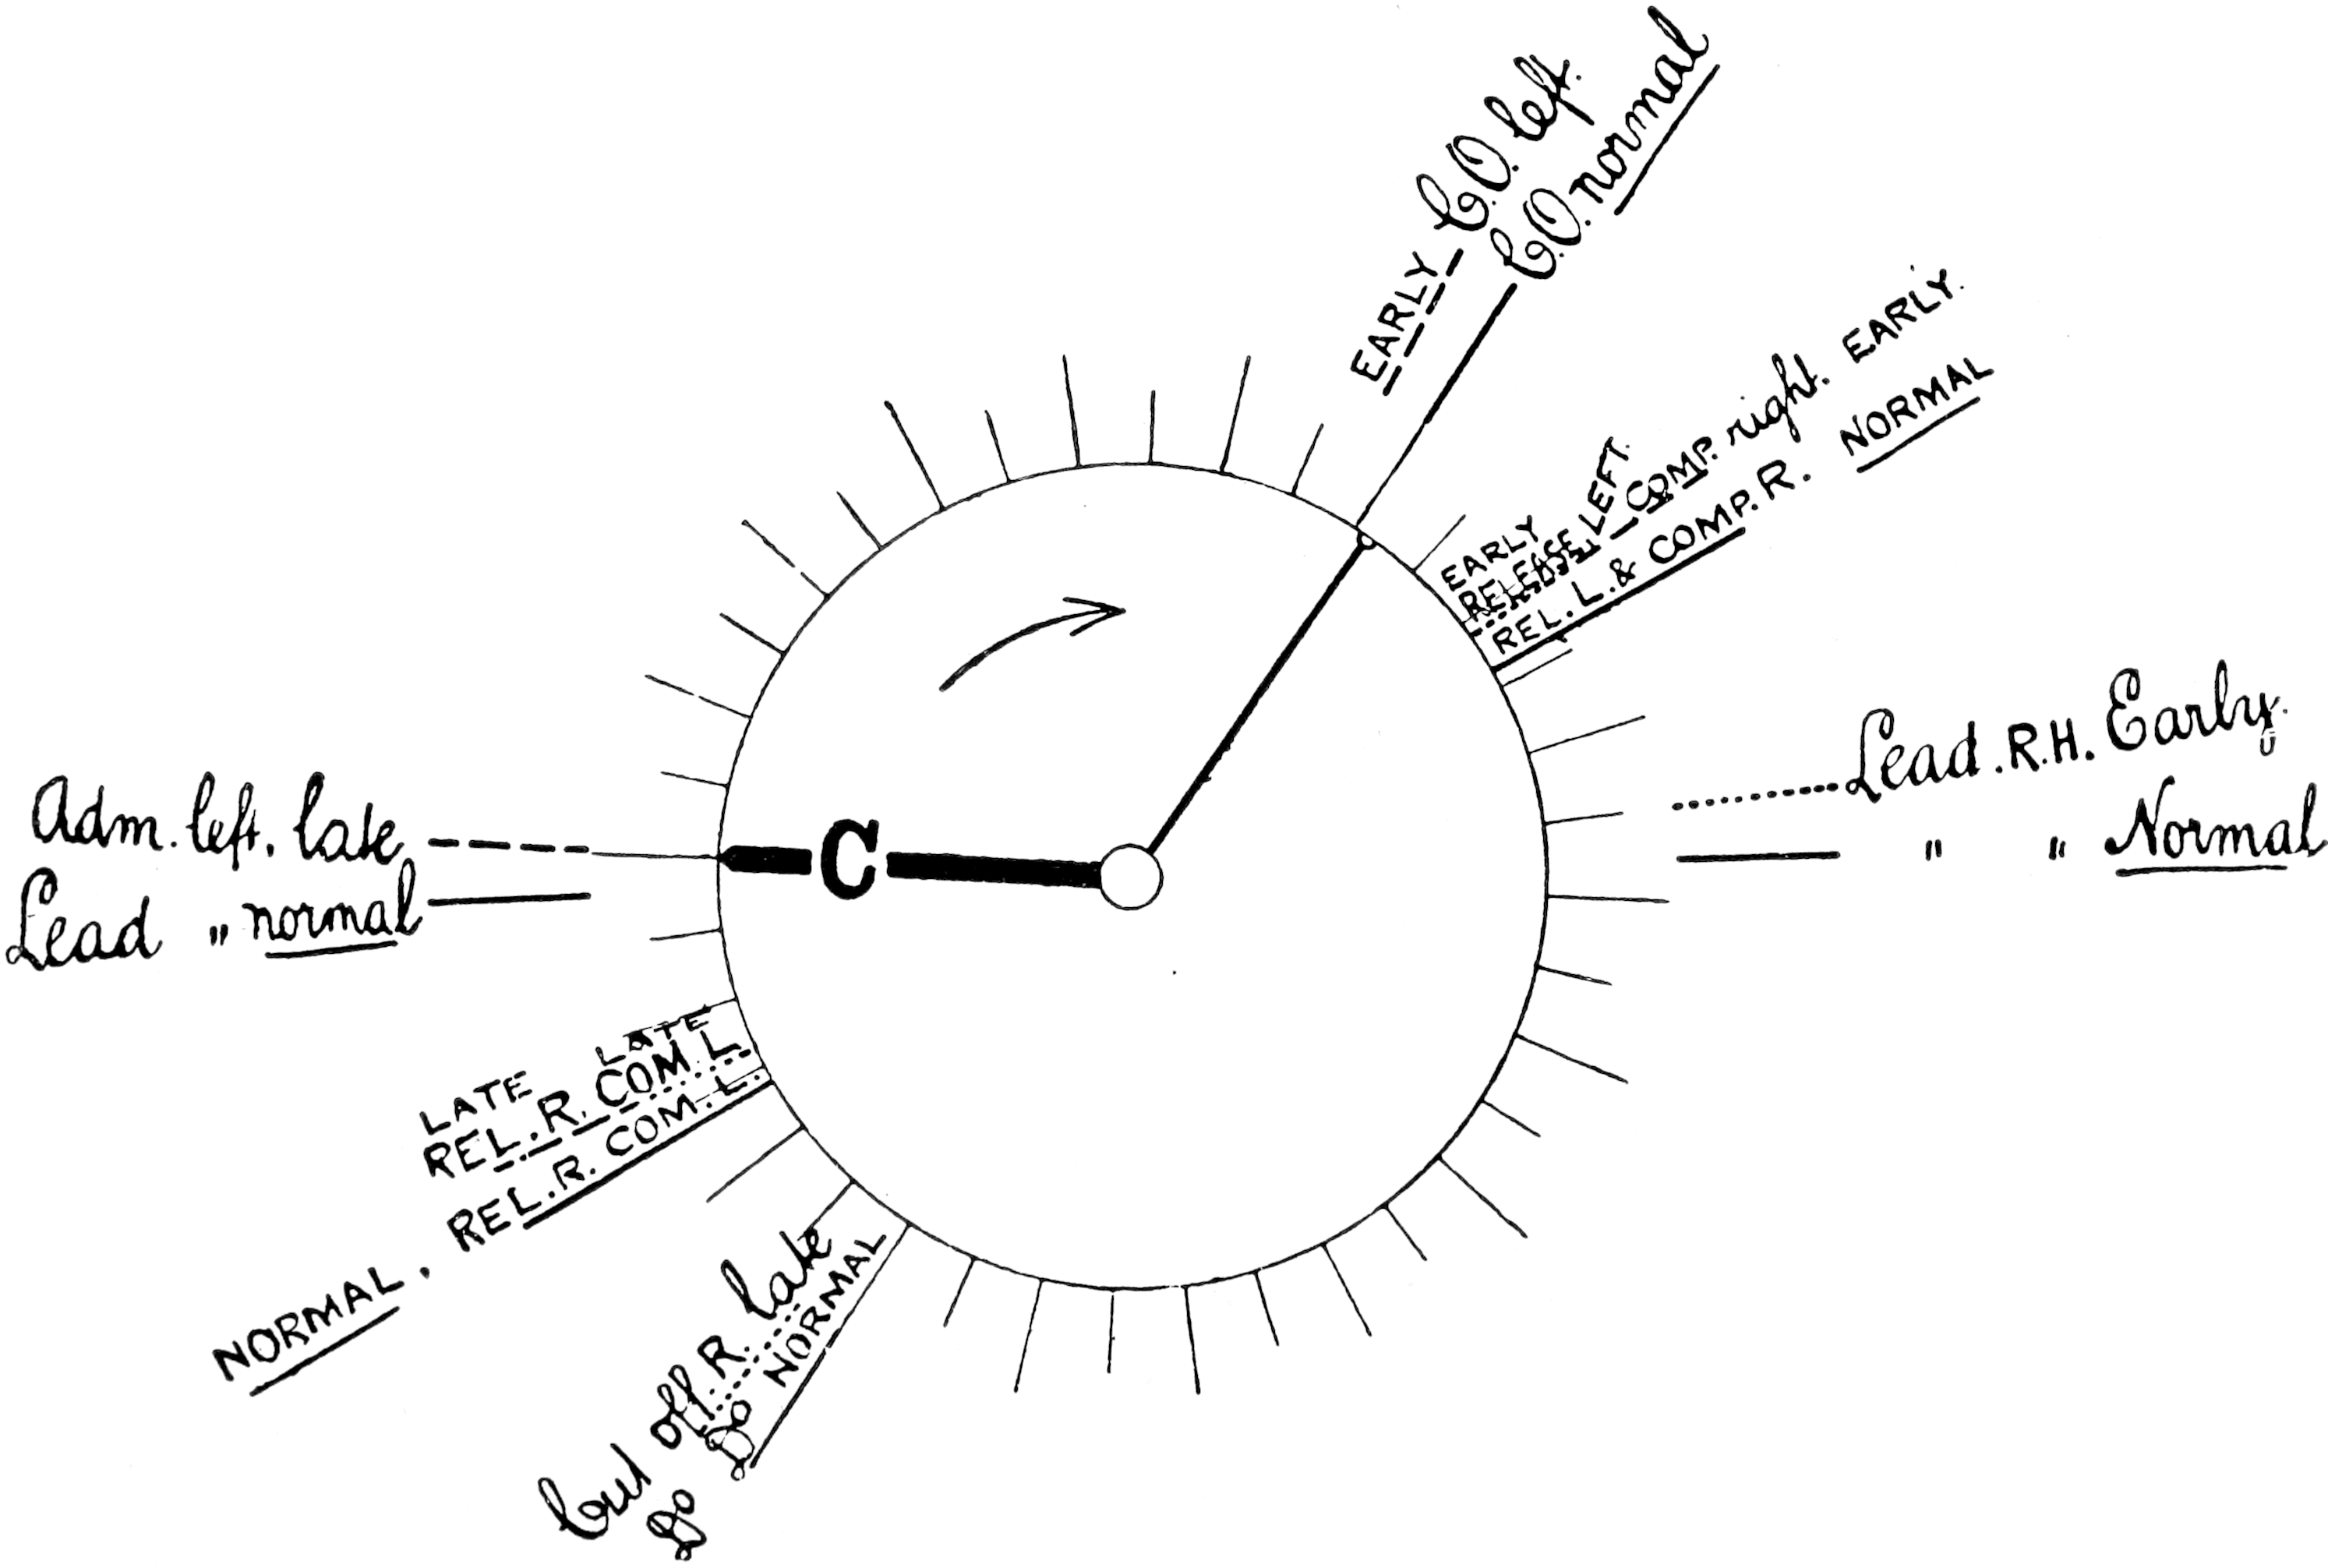 EARLY C.O. left.
C.O. normal
EARLY
RELEASE LEFT.
COMP. right. EARLY.
REL. L. & COMP. R. NORMAL
Lead. R.H. Early.
" " Normal
Adm. left. late
Lead " normal
C
LATE LATE
REL. R. COM. L
NORMAL. REL. R. COM. L.
Cut off. R. late
Do Do NORMAL